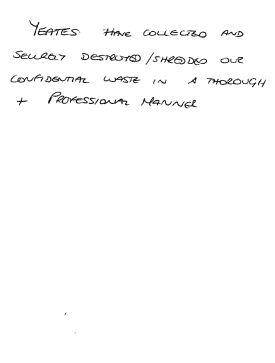 YEATES HAVE COLLECTED AND
SECURELY DESTROYED/SHREDDED OUR
CONFIDENTIAL WASTE IN A THOROUGH
+ PROFESSIONAL MANNER